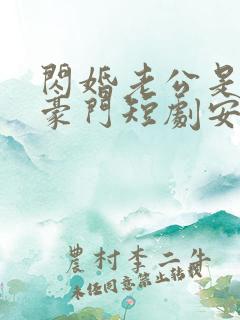 閃婚老公是
豪門短劇安
農村李二牛
未任同意禁止轉載